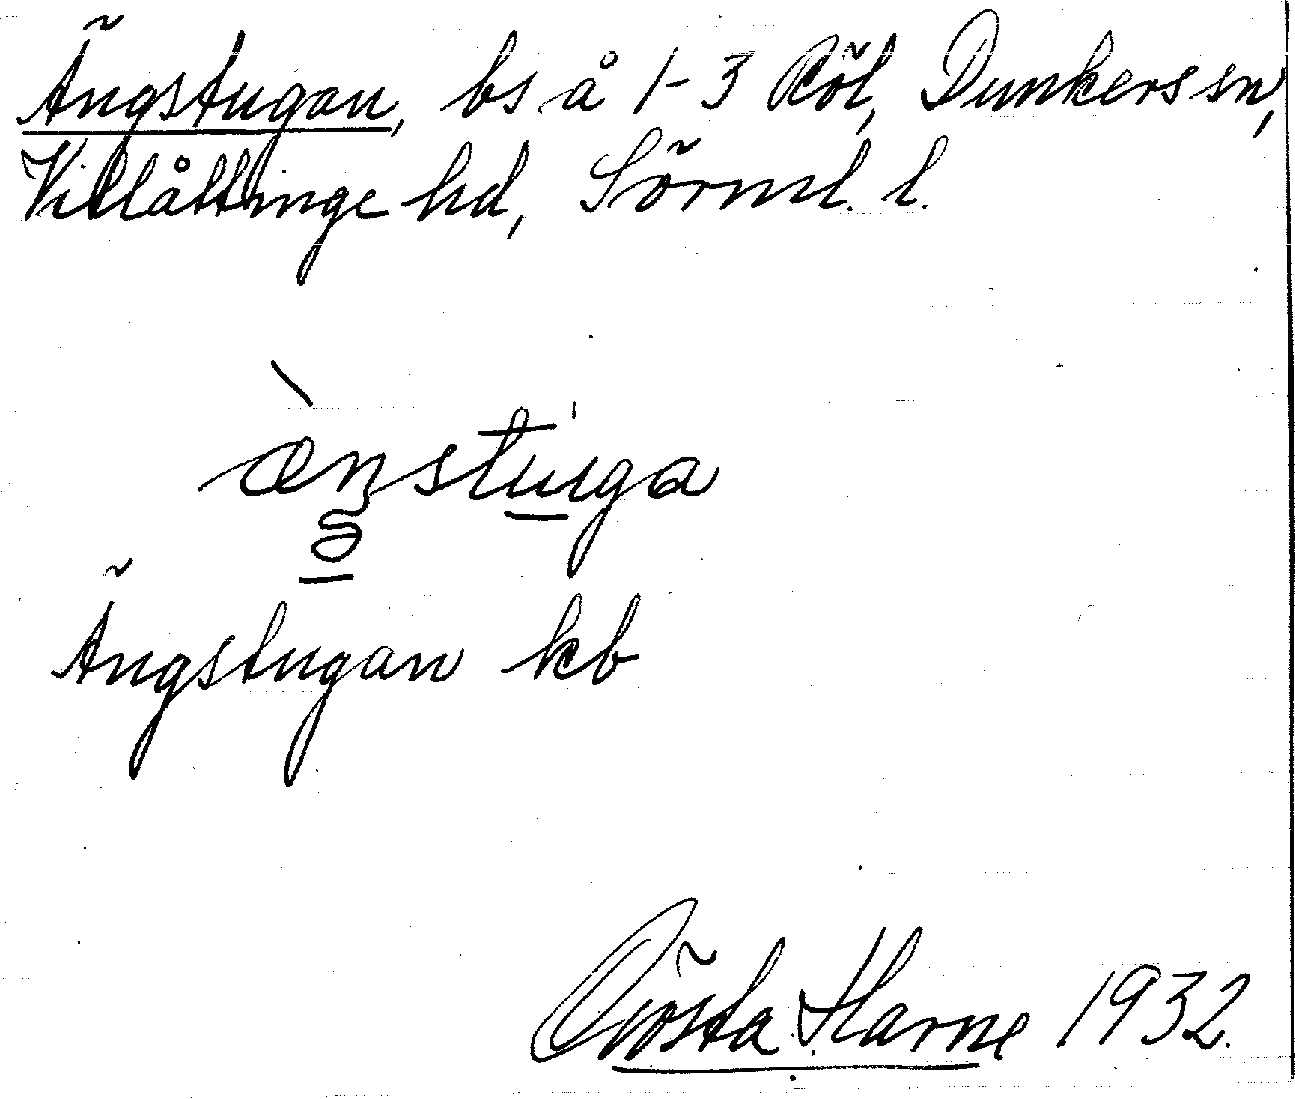 Ängstugan, bs å 1-3 Röl, Dunkers sn,
Villåttinge hd, Sörml. l.
ængstuga
Ängstugan kb
Gösta Harne 1932.